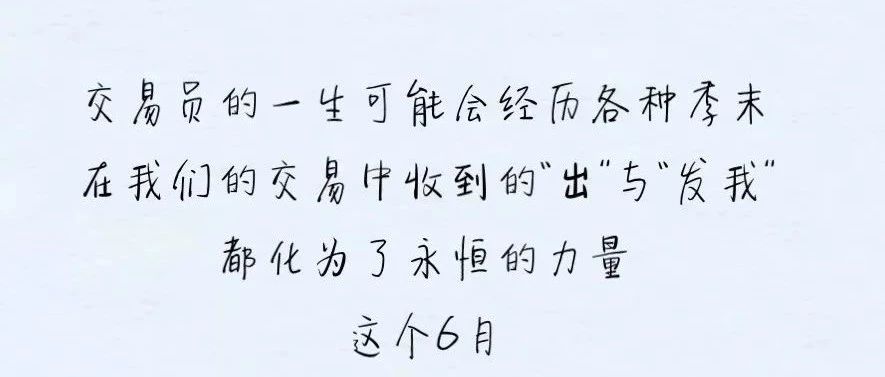 交易员的一生可能会经历各种季末
在我们的交易中收到的“出“与“发我“
都化为了永恒的力量
这个6月